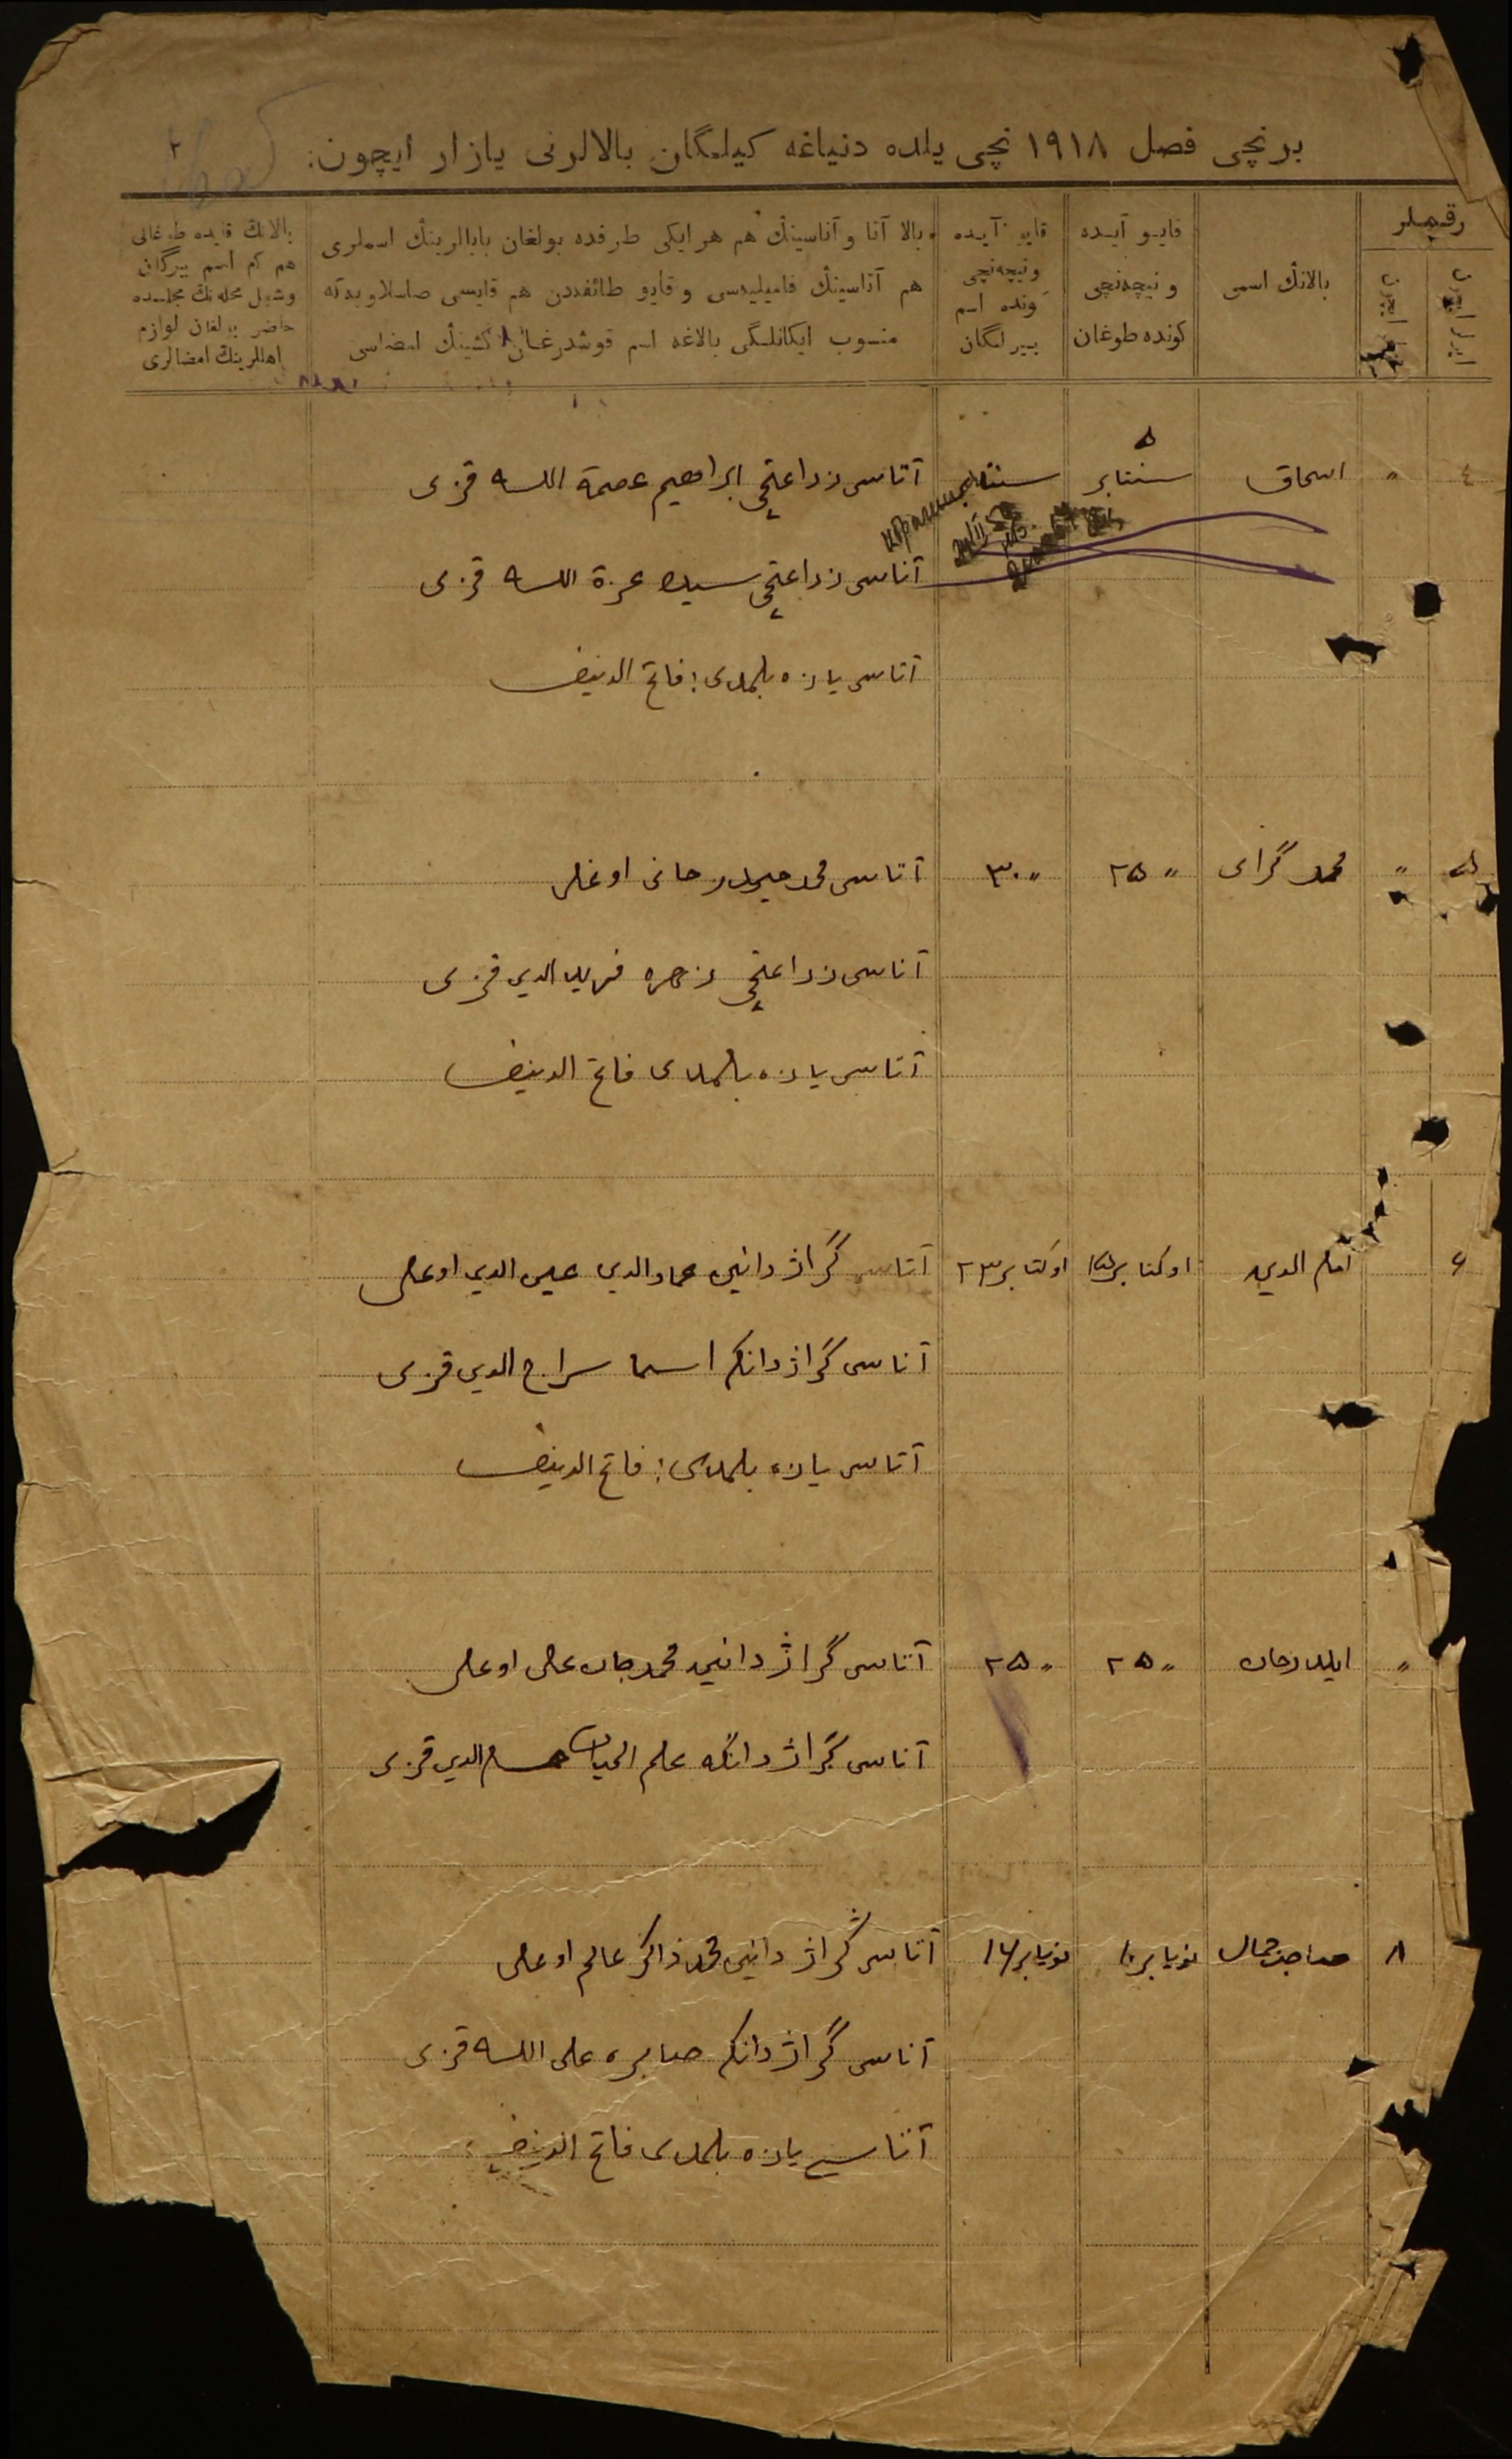 برنچی فصل ١٩١٨ نچی یلده دنیاغه کیلگان بالالرنی یازار ایچون:
رقملر
بالانڭ اسمی
قایو آیده
ونیچه‌نچی
کونده طوغان
قایو آیده
ونیچه‌نچی
کونده اسم
بیرلگان
بالا آتا و آناسینڭ هم هر ایکی طرفده بولغان بابالرینڭ اسملری
هم آتاسینڭ فامیلیه‌سی وقایو طائفه‌دن هم قایسی صاسلاویه‌گه
منسوب ایکانلگی بالاغه اسم قوشدرغان کشینڭ امضاسی
بالانڭ قایده طوغانی
هم کم اسم بیرگان
وشول محله‌نڭ مجلسده
حاضر بولغان لوازم
اهللرینڭ امضالری
٤ " اسحاق سنتابر ۵ سنتابر آتاسی زراعتچی ابراهیم عصمة الله قزی
آناسی زراعتچی سیده عزة الله قزی
آتاسی یازه بلمادی: فاتح الدینف
۵ " محمد گرای " ٢۵ " ٣٠ آتاسی محمد حیدر خانی اوغلی
آناسی زراعتچی زهره فریدالدین قزی
آتاسی یازه بلمادی فاتح الدینف
۶ امام الدین اوکتابر ١۵ اوکتابر ٢٣ آتاسی گراژدانین عمادالدین عین الدین اوغلی
آناسی گراژدانکه اسما سراج الدین قزی
آتاسی یازه بلمادی: فاتح الدینف
" ایلدارخان " ٢۵ " ٢۵ آتاسی گراژدانین محمدجان علی اوغلی
آناسی گراژدانکه علم الحیات حسام الدین قزی
٨ صاحبجمال نویابر ١٠ نویابر ١٦ آتاسی گراژدانین محمد ذاکر عالم اوغلی
آناسی گراژدانکه صابره علی الله قزی
آتاسی یازه بلمادی فاتح الدینف